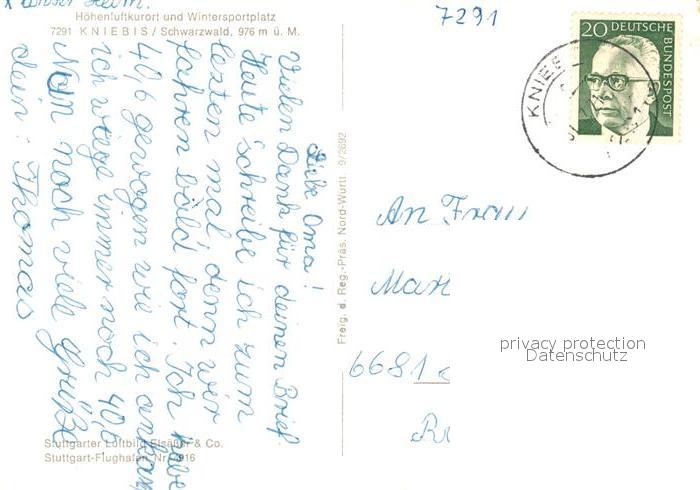 x unser Heim.
Höhenluftkurort und Wintersportplatz
7291 KNIEBIS / Schwarzwald, 976 m ü. M.
Liebe Oma!
Vielen Dank für deinen Brief
Heute schreibe ich zum
lezten mal denn wir
fahren bald fort. Ich habe
40,6 gewogen wie ich ankam
ich wiege immer noch 40,6
Nun noch viele Grüße
dein: Thomas
Stuttgarter Luftbild Elsäßer & Co.
Stuttgart-Flughafen Nr.
Freig. d. Reg.-Präs. Nord-Württ. 9/2692
7291
20 DEUTSCHE
BUNDESPOST
KNIEB
An Frau
Mar
6681
privacy protection
Datenschutz